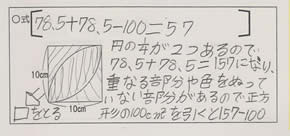 ○式 [78.5+78.5-100=57
円の本が2つあるので
78.5+78.5=157になり、
重なる音分や色をぬって
いない音分があるので正方
形の100c㎡を引くと157-100
10cm
10cm
をとる